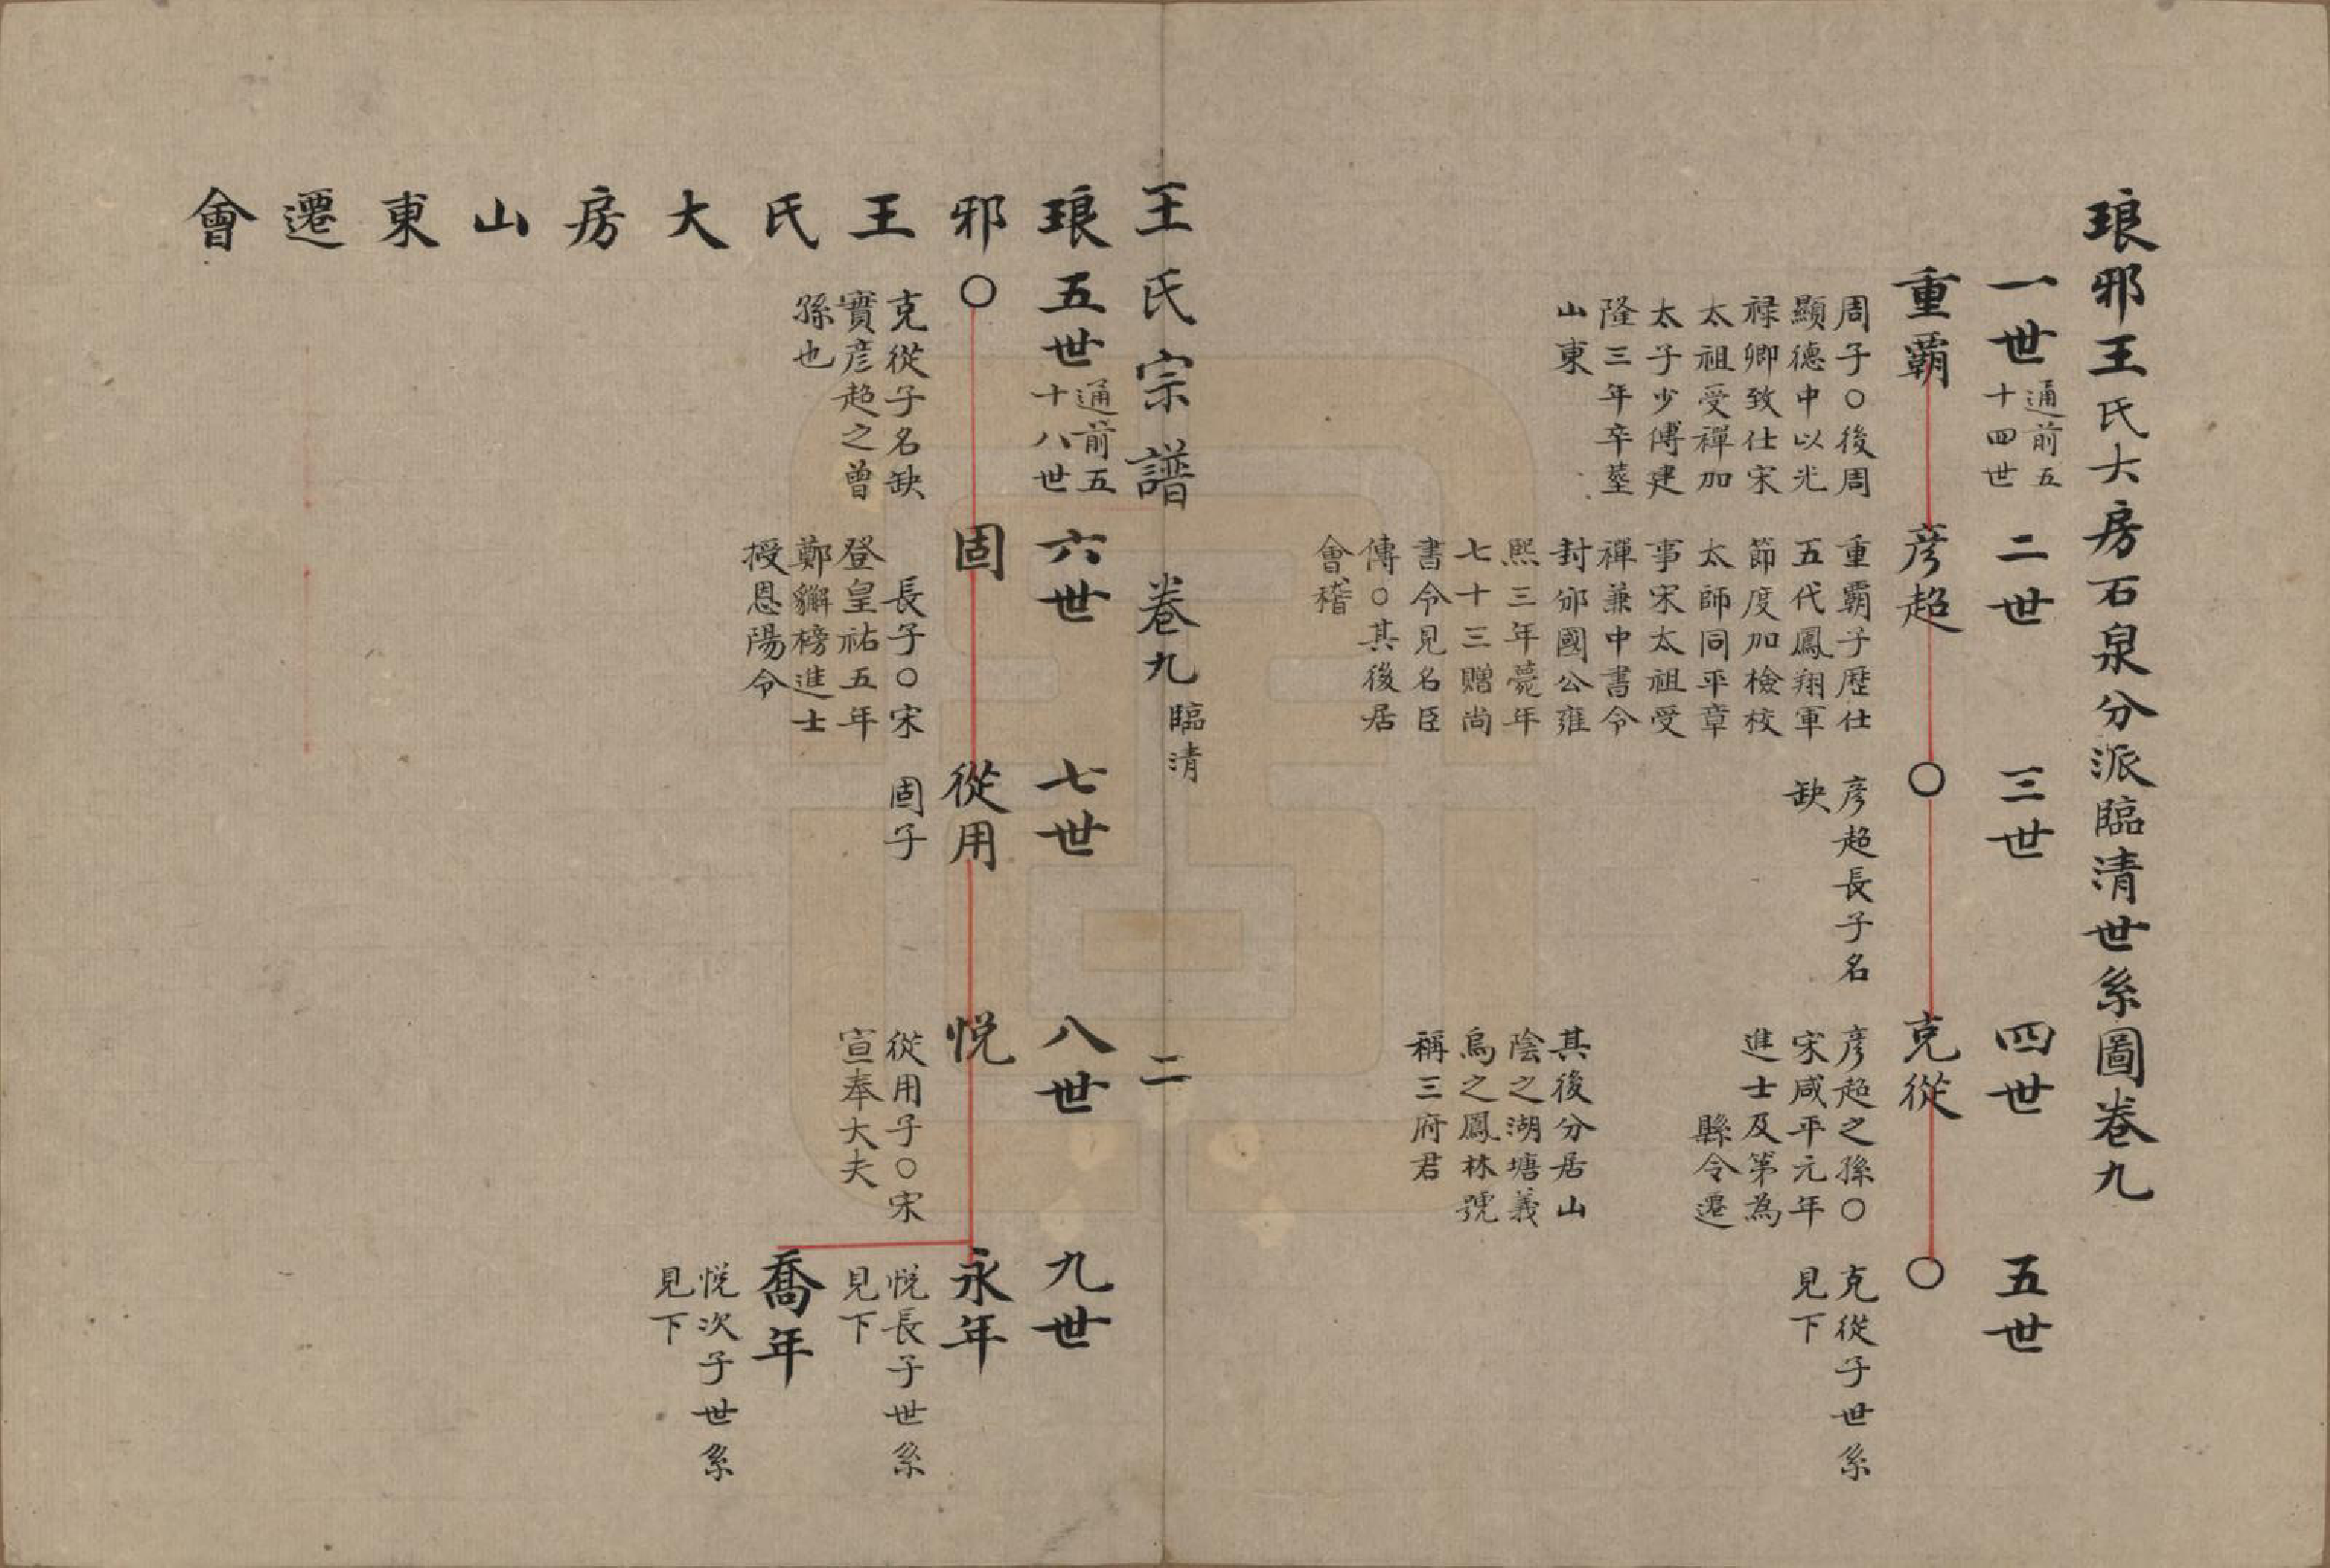 琅邪王氏大房石泉分派臨清世系圖卷九
一世
通前五
十四世
二世
三世
四世
五世
重霸
周子○後周
顯德中以光
祿卿致仕宋
太祖受禪加
太子少傅建
隆三年卒墓
山東
彥超
重霸子歷仕
五代鳳翔軍
節度加檢校
太師同平章
事宋太祖受
禪兼中書令
封邠國公雍
熙三年薨年
七十三贈尚
書令見名臣
傳○其後居
會稽
○
彥超長子名
缺
克從
彥超之孫○
宋咸平元年
進士及第為
縣令遷
其後分居山
陰之湖塘義
烏之鳳林號
稱三府君
○
克從子世系
見下
王氏宗譜 卷九
臨清
二
琅邪王氏大房山東遷會
五世
通前五
十八世
六世
七世
八世
九世
○
克從子名缺
實彥超之曾
孫也
固
長子○宋
登皇祐五年
鄭獬榜進士
授恩陽令
從用
固子
悅
從用子○宋
宣奉大夫
永年
悅長子世系
見下
喬年
悅次子世系
見下